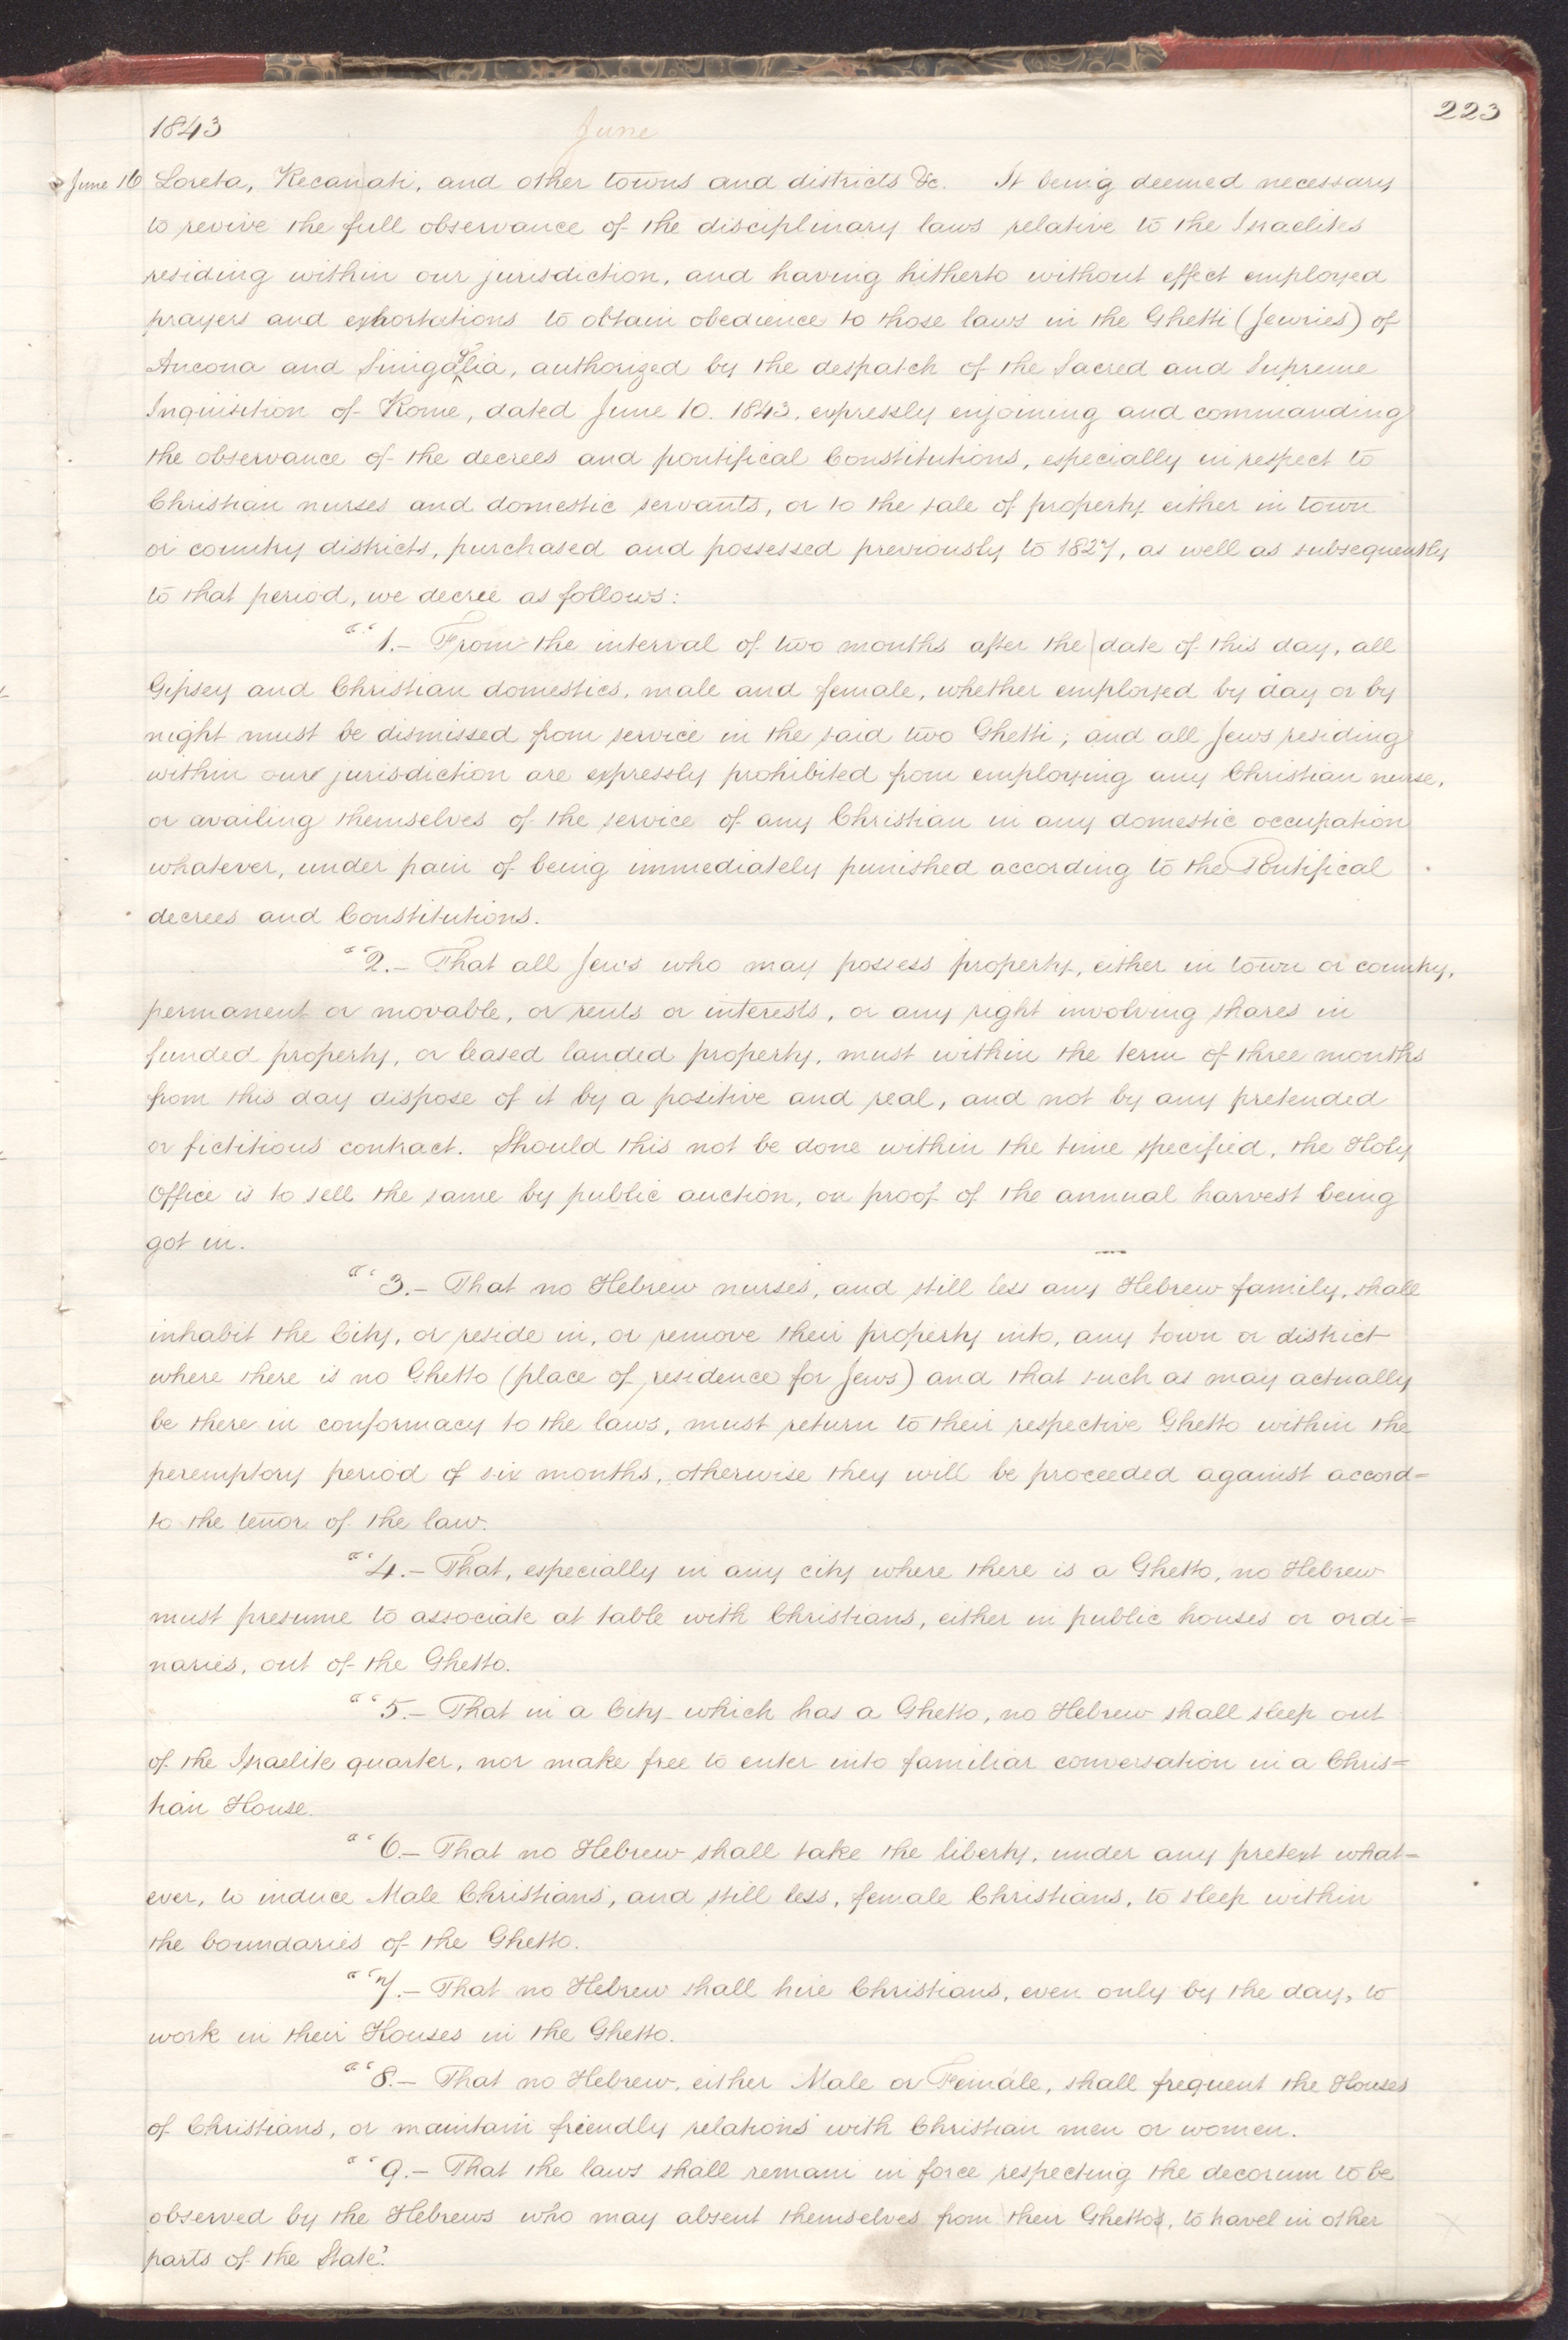 1843 June 223
June 16 Loreta, Recanati, and other towns and districts &c. It being deemed necessary
to revive the full observance of the disciplinary laws relative to the Israelites
residing within our jurisdiction, and having hitherto without effect employed
prayers and exhortations to obtain obedience to those laws in the Ghetti (Jewries) of
Ancona and Sinigaglia, authorized by the despatch of the Sacred and Supreme
Inquisition of Rome, dated June 10. 1843, expressly enjoining and commanding
the observance of the decrees and pontifical Constitutions, especially in respect to
Christian nurses and domestic servants, or to the sale of property either in town
or country districts, purchased and possessed previously to 1827, as well as subsequently
to that period, we decree as follows:
"‘1.— From the interval of two months after the date of this day, all
Gipsey and Christian domestics, male and female, whether employed by day or by
night must be dismissed from service in the said two Ghetti; and all Jews residing
within our jurisdiction are expressly prohibited from employing any Christian nurse,
or availing themselves of the service of any Christian in any domestic occupation
whatever, under pain of being immediately punished according to the Pontifical
decrees and Constitutions.
"‘2.— That all Jews who may possess property, either in town or country,
permanent or movable, or rents or interests, or any right involving shares in
funded property, or leased landed property, must within the term of three months
from this day dispose of it by a positive and real, and not by any pretended
or fictitious contract. Should this not be done within the time specified, the Holy
Office is to sell the same by public auction, on proof of the annual harvest being
got in.
"‘3.— That no Hebrew nurses, and still less any Hebrew family, shall
inhabit the City, or reside in, or remove their property into, any town or district
where there is no Ghetto (place of residence for Jews) and that such as may actually
be there in conformacy to the laws, must return to their respective Ghetto within the
peremptory period of six months, otherwise they will be proceeded against accord=
to the tenor of the law.
"‘4.— That, especially in any city where there is a Ghetto, no Hebrew
must presume to associate at table with Christians, either in public houses or ordi=
naries, out of the Ghetto.
"‘5.— That in a City which has a Ghetto, no Hebrew shall sleep out
of the Israelite quarter, nor make free to enter into familiar conversation in a Chris=
tian House.
"‘6.— That no Hebrew shall take the liberty, under any pretext what=
ever, to induce Male Christians, and still less, female Christians, to sleep within
the boundaries of the Ghetto.
"‘7.— That no Hebrew shall hire Christians, even only by the day, to
work in their Houses in the Ghetto.
"‘8.— That no Hebrew, either Male or Female, shall frequent the Houses
of Christians, or maintain friendly relations with Christian men or women.
"‘9.— That the laws shall remain in force respecting the decorum to be
observed by the Hebrews who may absent themselves from their Ghettos, to travel in other
parts of the State.’